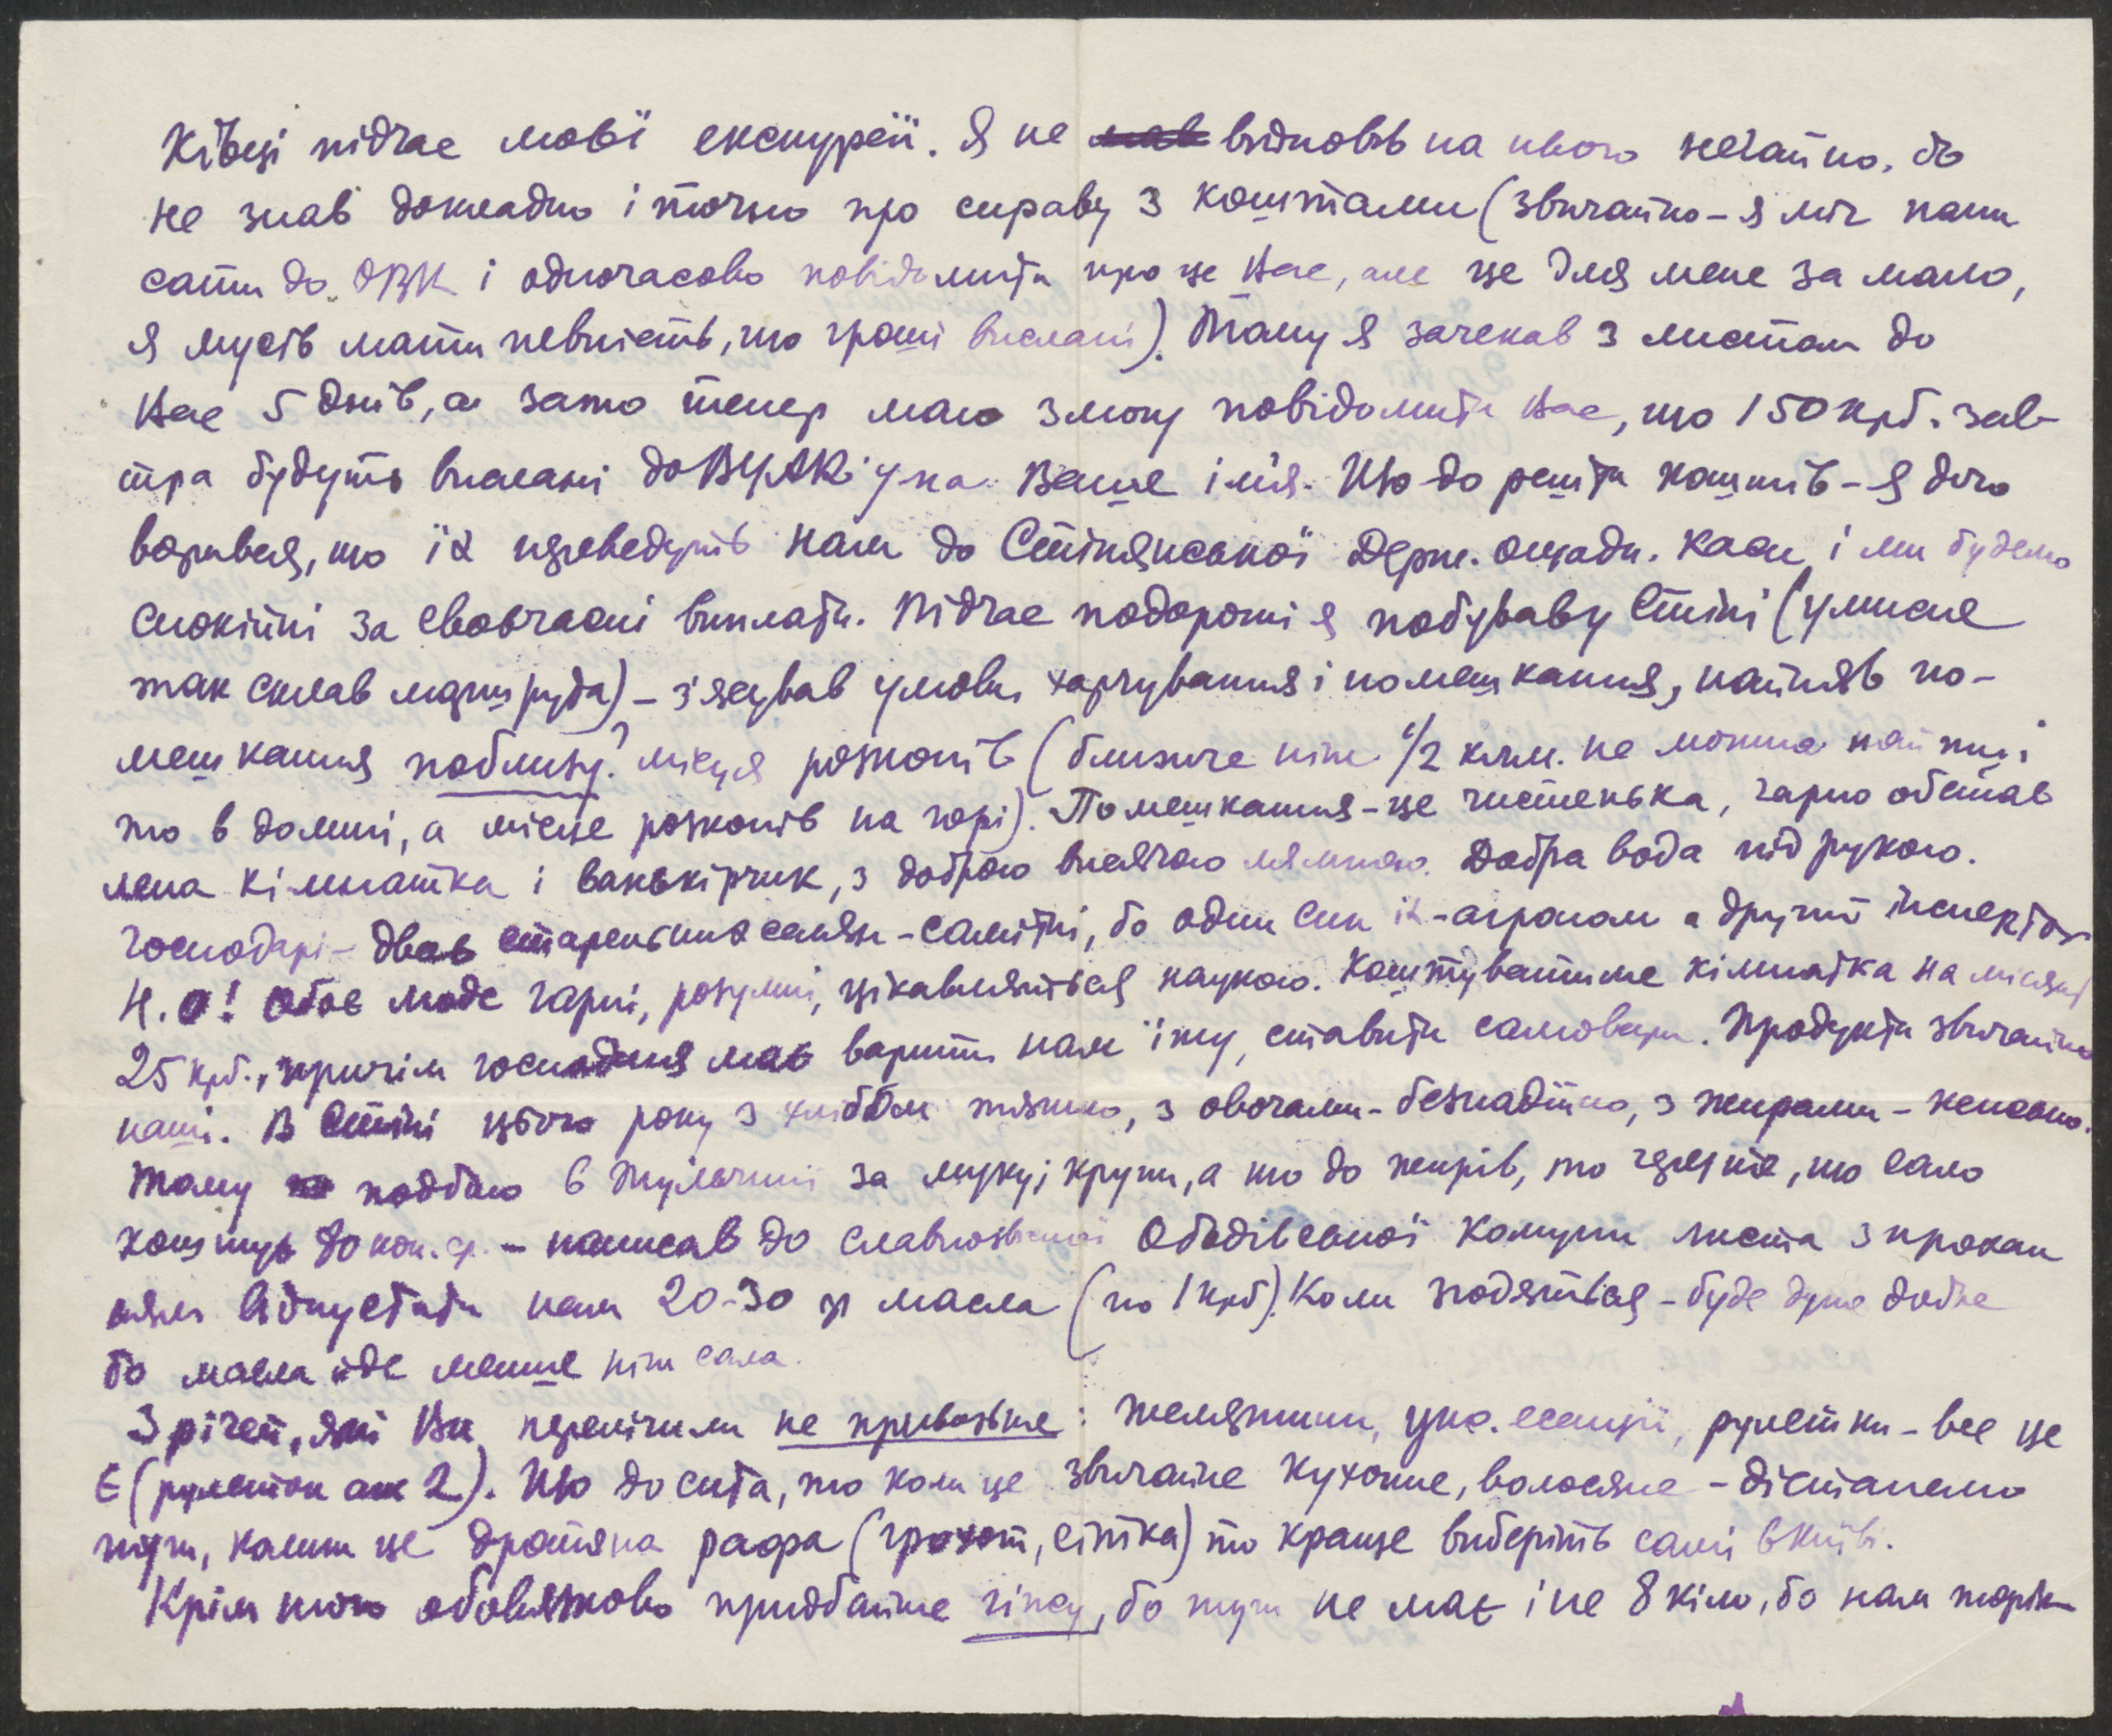 Ківці підчас мові екскурсії. Я не відповів на нього негайно, бо
не знав докладно і точно про справу з коштами (звичайно – я міг напи
сати до ОВК і одночасово повідомити про це Вас, але це для мене за мало,
я мусів мати певність, що гроші вислані). Тому я зачекав з листом до
Вас 5 днів, а зато тепер маю змогу повідомити Вас, що 150 крб. зав-
тра будуть вислані до ВУАК'у на Ваше ім'я. Що до решти коштів – я дого
ворився, що їх переведуть нам до Стінянської Держ. ощадн. каси і ми будемо
спокійні за своєчасні виплати. Підчас подорожі я побував у Стіні (умисне
так склав маршрута) – з'ясував умови харчування і помешкання, найняв по-
мешкання поблизу? місця розкопів (ближче ніж 1/2 клм. не можна найти і
то в долині, а місце розкопів на горі). Помешкання – це чистенька, гарно обстав
лена кімнатка і ванькірчик, з доброю висячою лямпою. Добра вода під рукою.
Господарі – двоє стареньких селян – самітні, бо один син їх – агроном а другий інспектор
Н.О! Обоє люде гарні, розумні, цікавляться наукою. Коштуватиме кімнатка на місяць
25 крб., причім господиня має варити нам їжу, ставити самовари. Продукти звичайно
наші. В Стіні цього року з хлібом тяжко, з овочами – безнадійно, з жирами – кепсько.
Тому подбаю в Тульчині за муку, крупи, а що до жирів, то через те, що сало
коштує 80 коп. ф. – написав до славнозвісної Ободівської Комуни листа з прохан
ням відпустити нам 20-30 ф масла (по 1 крб). Коли згодяться – буде дуже добре
бо масла йде менше ніж сала.
З річей, які Ви перелічили не привозьте: желятини, укс. есенції, рулетки – все це
є (рулеток аж 2). Що до сита, то коли це звичайне кухонне, волосяне – дістанемо
тут, колиж це дротяна рафа (грохот, сітка) то краще виберіть самі в Київі.
Крім того обовязково придбайте гіпсу, бо тут не має і не 8 кіло, бо нам торік